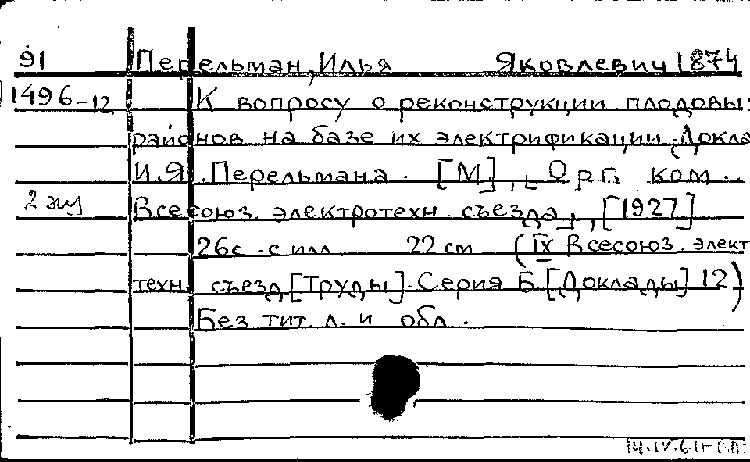 91 Перельман, Илья Яковлевич 1874
1496-12 К вопросу о реконструкции плодовы
районов на базе их электрификации. (Докла
И.Я. Перельмана. [М], [Орг. ком.
2 экз Всесоюз. электротехн. съезда], [1927]
26с. с илл. 22 см (IX Всесоюз. элект
техн. съезд [Труды]. Серия Б [Доклады] 12)
Без тит. л. и обл.